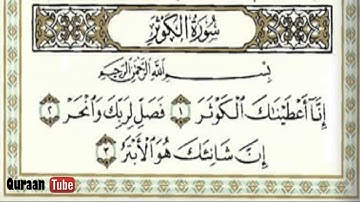 سُورَةُ الكَوْثَرِ
بِسْمِ اللَّهِ الرَّحْمَٰنِ الرَّحِيمِ
إِنَّآ أَعْطَيْنَٰكَ ٱلْكَوْثَرَ ١ فَصَلِّ لِرَبِّكَ وَٱنْحَرْ ٢
إِنَّ شَانِئَكَ هُوَ ٱلْأَبْتَرُ ٣
Quraan Tube